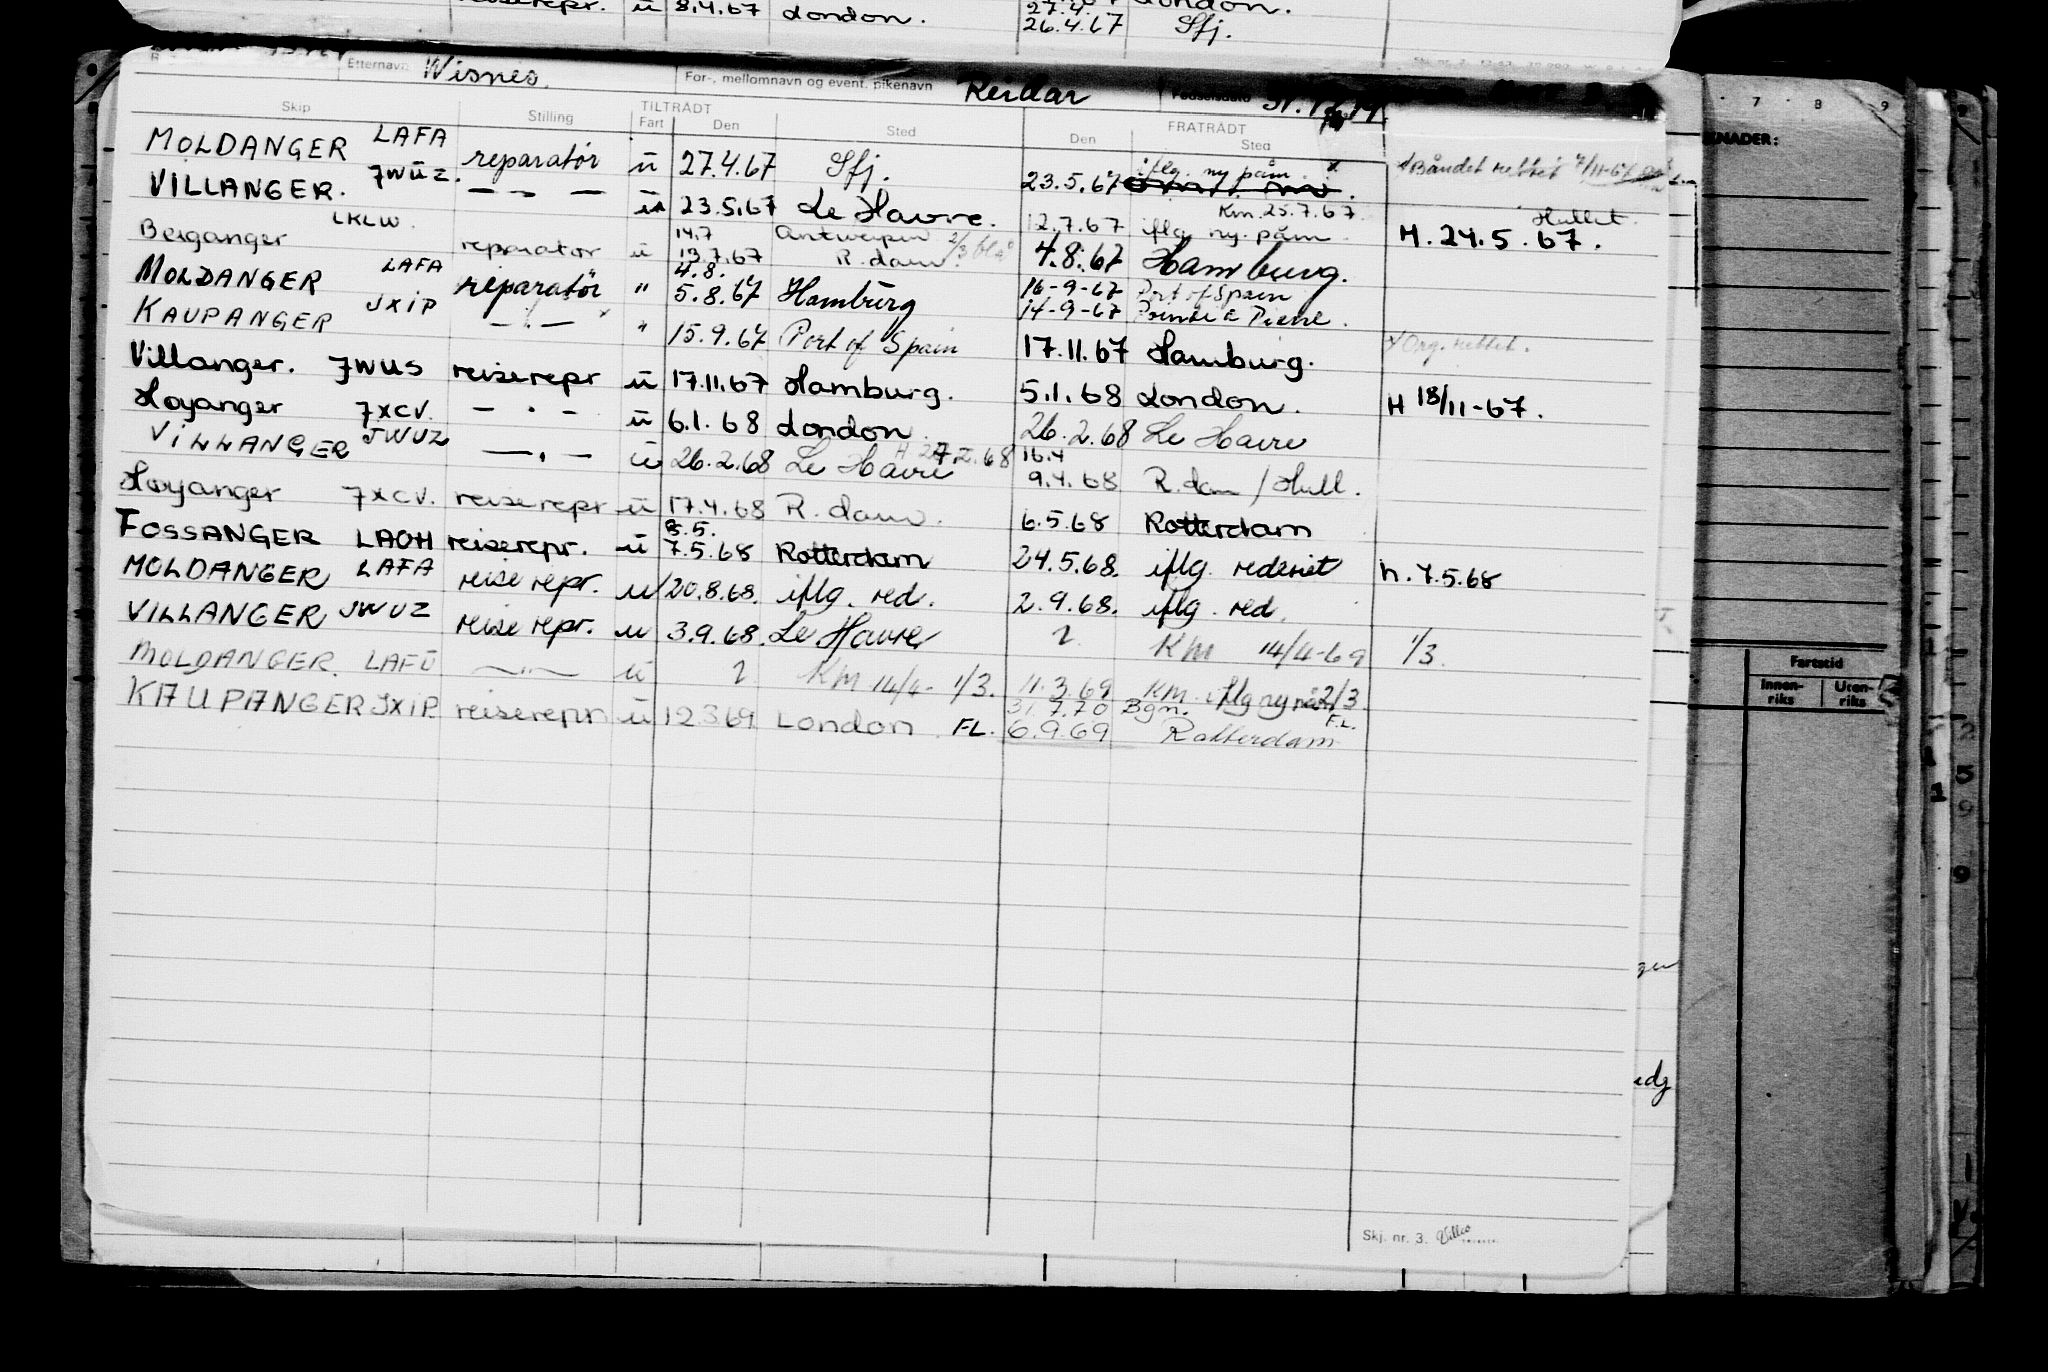 reiserepr. ū 8.4.67 London. 27.4. London.
26.4.67 Sfj.
Etternavn Wisnes. For-, mellomnavn og event. pikenavn Reidar Fødselsdato
Skip Stilling TILTRÅDT FRATRÅDT
Fart Den Sted Den Sted
MOLDANGER LAFA reparatør ū 27.4.67 Sfj. 23.5.67 iflg. ny påm. x
VILLANGER. JWUZ. — — ū 23.5.67 Le Havre. 12.7.67 iflg. ny. påm. Km. 25.7.67 H. 24.5.67.
Berganger LKLW. reparatør ū 14.7 13.7.67 Antwerpen R. dam. 4.8.67 Hamburg.
MOLDANGER LAFA reparatör " 4.8. 5.8.67 Hamburg 16-9-67 Port of Spain
14-9-67 Pointe a Pierre.
KAUPANGER JXIP — . — " 15.9.67 Port of Spain 17.11.67 Hamburg. x Org. rettet.
Villanger. JWUS reiserepr ū 17.11.67 Hamburg. 5.1.68 London. H 18/11-67.
Høyanger JXCV. — . — ū 6.1.68 London. 26.2.68 Le Havre
VILLANGER JWUZ — . — ū 26.2.68 Le Havre 16.4 9.4.68 R.dam / Hull.
Høyanger JXCV. reiserepr ū 17.4.68 R. dam. 6.5.68 Rotterdam
FOSSANGER LAOH reiserepr. ū 8.5. 7.5.68 Rotterdam 24.5.68. iflg. rederiet h. 7.5.68
MOLDANGER LAFA reise repr. u 20.8.68. iflg. red. 2.9.68. iflg. red.
VILLANGER JWUZ reise repr. u 3.9.68. Le Havre ? KM 14/4-69 1/3.
MOLDANGER. LAFŪ — " — ū ? KM 14/4- 1/3. 11.3.69 KM. iflg ny påm 2/3.
KAUPANGER JXIP. reiserepr ū 12.3.69 London FL. 31.7.70 Bgn. F.L.
6.9.69 Rotterdam
Skj. nr. 3.
7 8 9
KNADER:
Fartstid
Innen-
riks
Uten-
riks